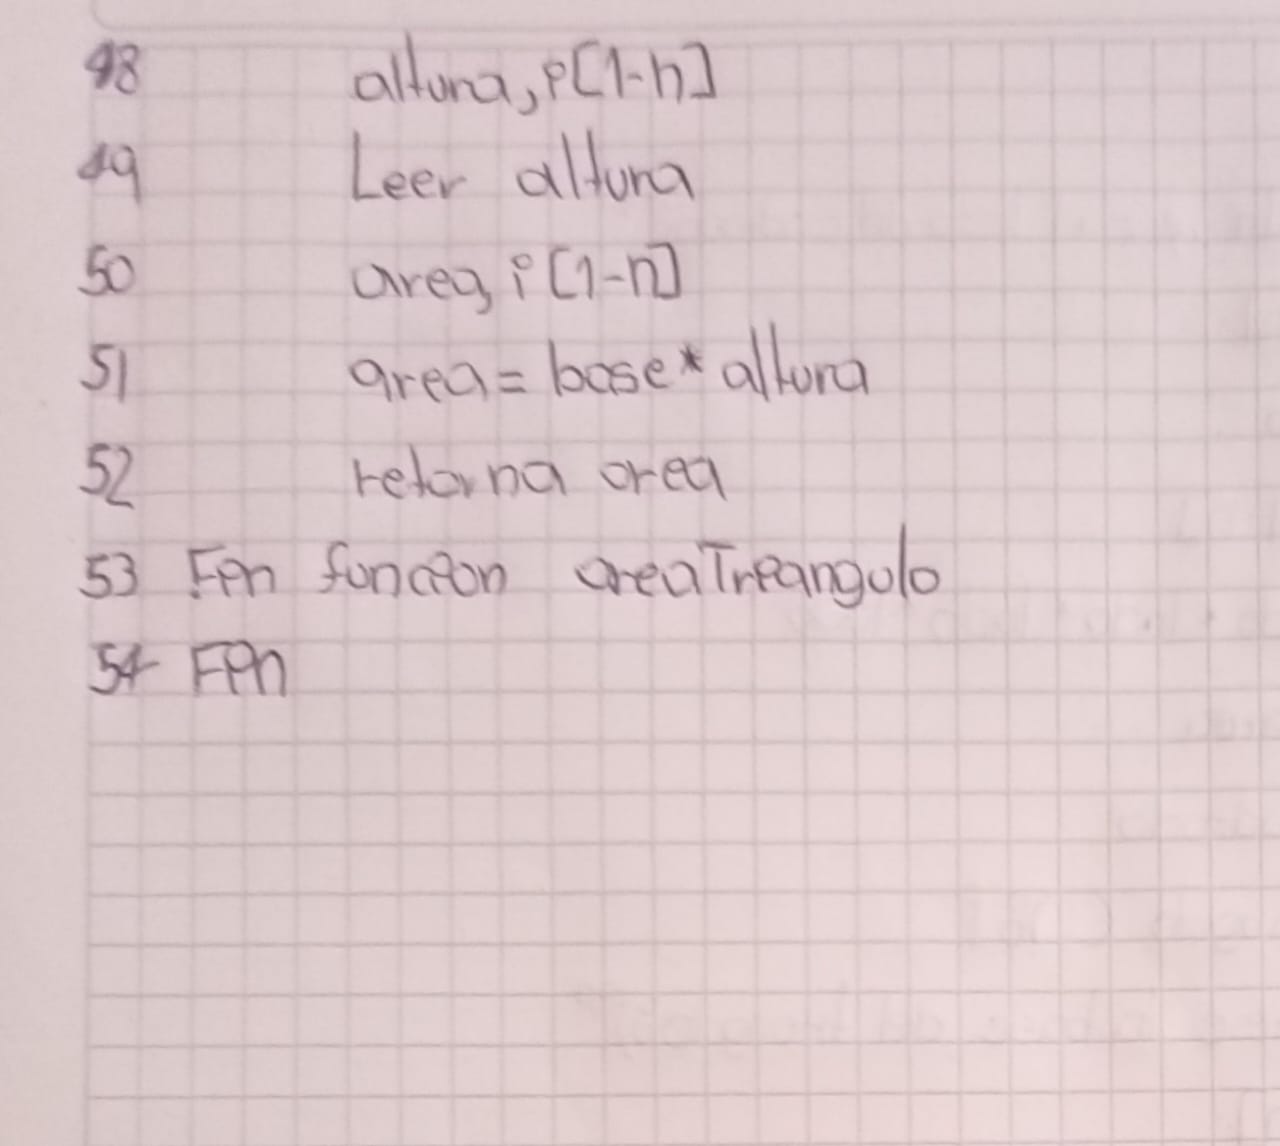 48 altura, i[1-n]
49 Leer altura
50 area, i[1-n]
51 area = base * altura
52 retorna area
53 Fin funcion areaTriangulo
54 Fin